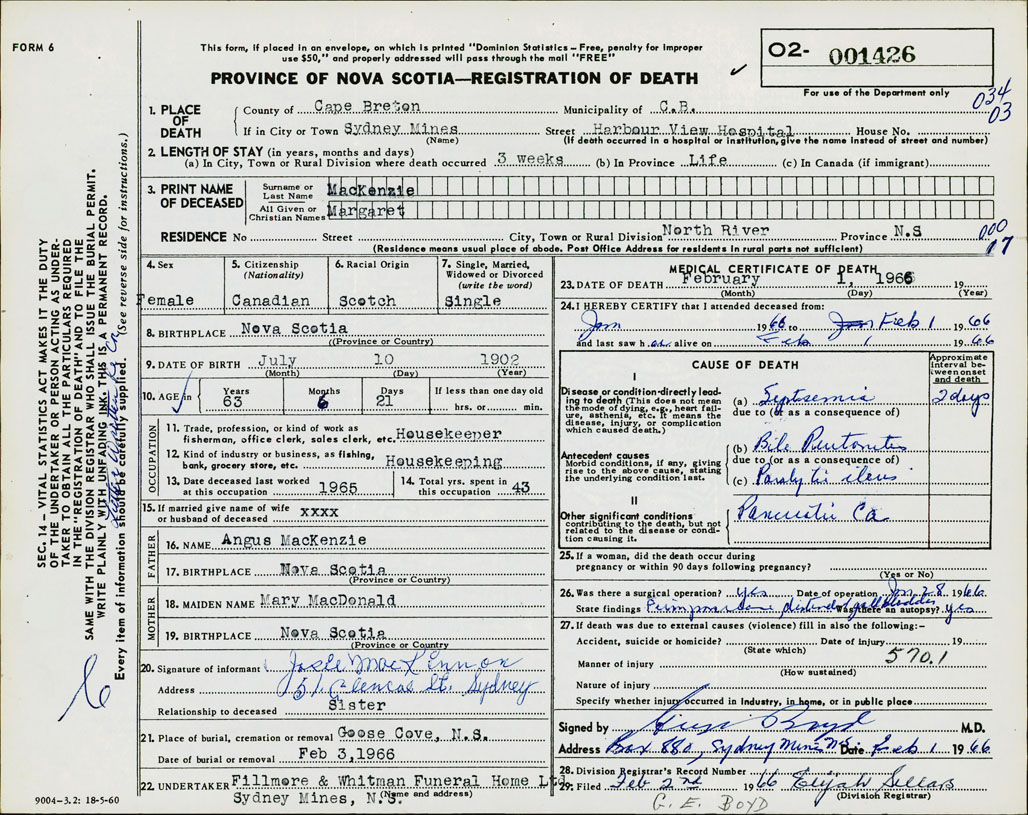 FORM 6
This form, if placed in an envelope, on which is printed "Dominion Statistics – Free, penalty for improper
use $50," and properly addressed will pass through the mail "FREE"
PROVINCE OF NOVA SCOTIA—REGISTRATION OF DEATH ✓
O2- 001426
For use of the Department only
034
03
1. PLACE OF DEATH County of Cape Breton Municipality of C.B.
If in City or Town Sydney Mines Street Harbour View Hospital House No.
(Name) (If death occurred in a hospital or institution, give the name instead of street and number)
2. LENGTH OF STAY (in years, months and days)
(a) In City, Town or Rural Division where death occurred 3 weeks (b) In Province Life (c) In Canada (if immigrant)
3. PRINT NAME OF DECEASED Surname or Last Name MacKenzie
All Given or Christian Names Margaret
RESIDENCE No Street City, Town or Rural Division North River Province N.S
000
17
(Residence means usual place of abode. Post Office Address for residents in rural parts not sufficient)
4. Sex Female
5. Citizenship (Nationality) Canadian
6. Racial Origin Scotch
7. Single, Married, Widowed or Divorced (write the word) Single
8. BIRTHPLACE Nova Scotia
(Province or Country)
9. DATE OF BIRTH July 10 1902
(Month) (Day) (Year)
10. AGE Years 63 Months 6 Days 21 If less than one day old hrs. or min.
OCCUPATION
11. Trade, profession, or kind of work as
fisherman, office clerk, sales clerk, etc. Housekeeper
12. Kind of industry or business, as fishing,
bank, grocery store, etc. Housekeeping
13. Date deceased last worked at this occupation 1965
14. Total yrs. spent in this occupation 43
15. If married give name of wife
or husband of deceased xxxx
FATHER
16. NAME Angus MacKenzie
17. BIRTHPLACE Nova Scotia
(Province or Country)
MOTHER
18. MAIDEN NAME Mary MacDonald
19. BIRTHPLACE Nova Scotia
(Province or Country)
20. Signature of informant Josie MacKinnon
Address 51 Glencoe St. Sydney
Relationship to deceased Sister
21. Place of burial, cremation or removal Goose Cove, N.S.
Date of burial or removal Feb 3,1966
22. UNDERTAKER Fillmore & Whitman Funeral Home Ltd
Sydney Mines, N.S.
(Name and address)
9004-3.2: 18-5-60
MEDICAL CERTIFICATE OF DEATH
23. DATE OF DEATH February 1, 1966
(Month) (Day) (Year)
24. I HEREBY CERTIFY that I attended deceased from:
Jan 1966 to Feb 1 1966
and last saw her alive on Feb 1 1966
CAUSE OF DEATH
Approximate interval between onset and death
I
Disease or condition directly leading to death (This does not mean the mode of dying, e.g., heart failure, asthenia, etc. It means the disease, injury, or complication which caused death.)
(a) Septsemia 2 days
due to (or as a consequence of)
Antecedent causes
Morbid conditions, if any, giving rise to the above cause, stating the underlying condition last.
(b) Bile Peritonites
due to (or as a consequence of)
(c) Paralytic ileus
II
Other significant conditions
contributing to the death, but not related to the disease or condition causing it.
Pancreatic Ca
25. If a woman, did the death occur during
pregnancy or within 90 days following pregnancy?
(Yes or No)
26. Was there a surgical operation? yes Date of operation Jan 28 1966
State findings distended gallbladder Was there an autopsy? yes
27. If death was due to external causes (violence) fill in also the following:-
Accident, suicide or homicide? Date of injury 19
(State which)
570.1
Manner of injury
(How sustained)
Nature of injury
Specify whether injury occurred in industry, in home, or in public place
Signed by Boyd M.D.
Address Box 880, Sydney Mines NS Date Feb 1 1966
28. Division Registrar's Record Number
29. Filed Feb 2nd 1966 Elijah Sellars
(Division Registrar)
G. E. BOYD
SEC. 14 – VITAL STATISTICS ACT MAKES IT THE DUTY
OF THE UNDERTAKER OR PERSON ACTING AS UNDER-
TAKER TO OBTAIN ALL THE PARTICULARS REQUIRED
IN THE "REGISTRATION OF DEATH" AND TO FILE THE
SAME WITH THE DIVISION REGISTRAR WHO SHALL ISSUE THE BURIAL PERMIT.
WRITE PLAINLY WITH UNFADING INK. THIS IS A PERMANENT RECORD.
Every item of information should be carefully supplied. (See reverse side for instructions.)